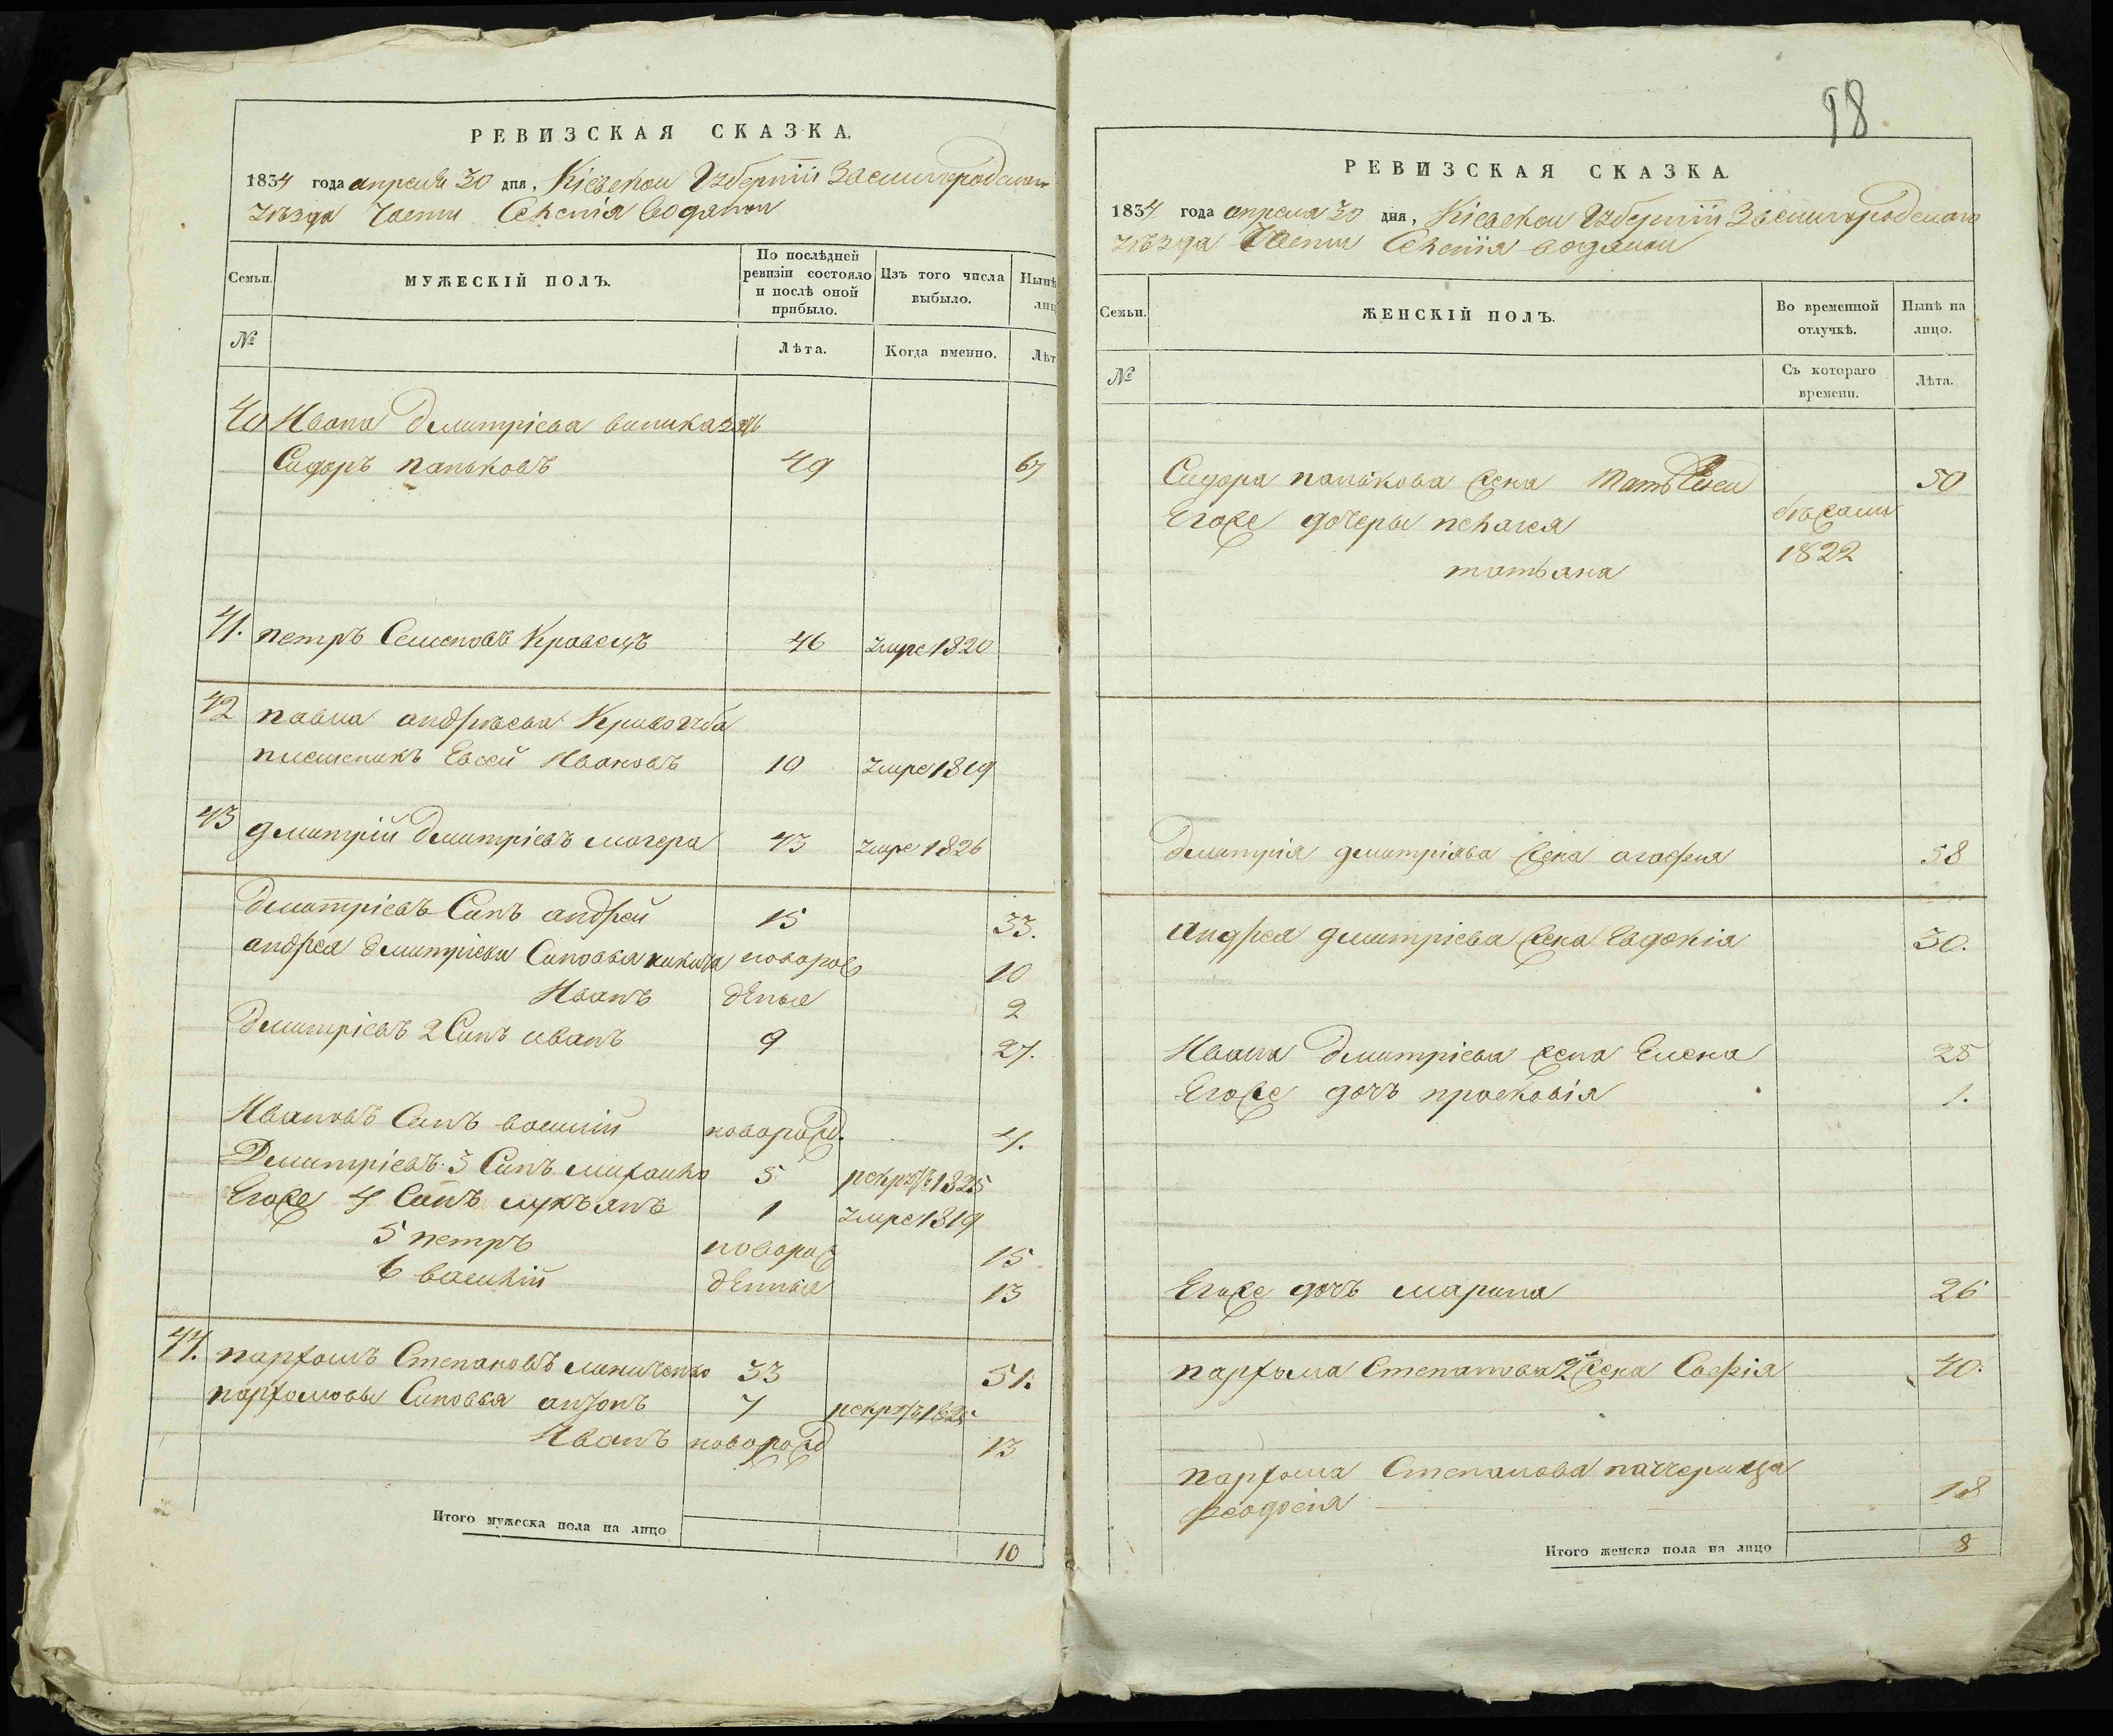 РЕВИЗСКАЯ СКАЗКА.
1834 года апреля 30 дня, Кіевской Губерніи Звенигородскаго
уѣзда Части Селенія водяной
Семьи.
МУЖЕСКІЙ ПОЛЪ.
По послѣдней ревизіи состояло и послѣ оной прибыло.
Изъ того числа выбыло.
Нынѣ
лиц
№
Лѣта.
Когда именно.
Лѣт
40 Ивана Дмитріева зять
Сидоръ паньковъ 49 67
41. петръ Семеновъ Кравецъ 46 умре 1820
42 павла андрѣева Кривогуба
племеникъ Евсей Ивановъ 10 умре 1819
43 дмитрій Дмитріевъ могера 43 умре 1826
Дмитріевъ Синъ андрей 15 33.
андрея Дмитріева Синовья никита новорож 10
Иванъ деные 2
Дмитріевъ 2 Синъ иванъ 9 27.
Ивановъ Синъ василій новорожд. 4.
Дмитріевъ 3 Синъ михайло 5 рекрутъ 1825
Егоже 4 Синъ лукъянъ 1 умре 1819
5 петръ новорож 15
6 василій денные 13
44. парфомъ Степановъ 33 51.
парфомовы Синовья антонъ 7 рекрутъ 1825
Иванъ новорожд 13
Итого мужеска пола на лицо 10
98
РЕВИЗСКАЯ СКАЗКА.
1834 года апреля 30 дня, Кіевской Губерніи Звенигородскаго
уѣзда Части Селенія водяной
Семьи.
ЖЕНСКІЙ ПОЛЪ.
Во временной отлучкѣ.
Нынѣ на лицо.
№
Съ котораго времени.
Лѣта.
Сидора панькова жена 50
Егоже дочеры пелагея бѣжали
татьяна 1822
Дмитрія дмитріява жена агафия 58
Андрея дмитріева жена Евдокія 30.
Ивана Дмитріева жена Елена 25
Егоже дочъ прасковія 1.
Егоже дочъ марина 26
парфома Степанова 2я жена Софія 40.
парфома Степанова падчерица
феодосія 18
Итого женска пола на лицо 8